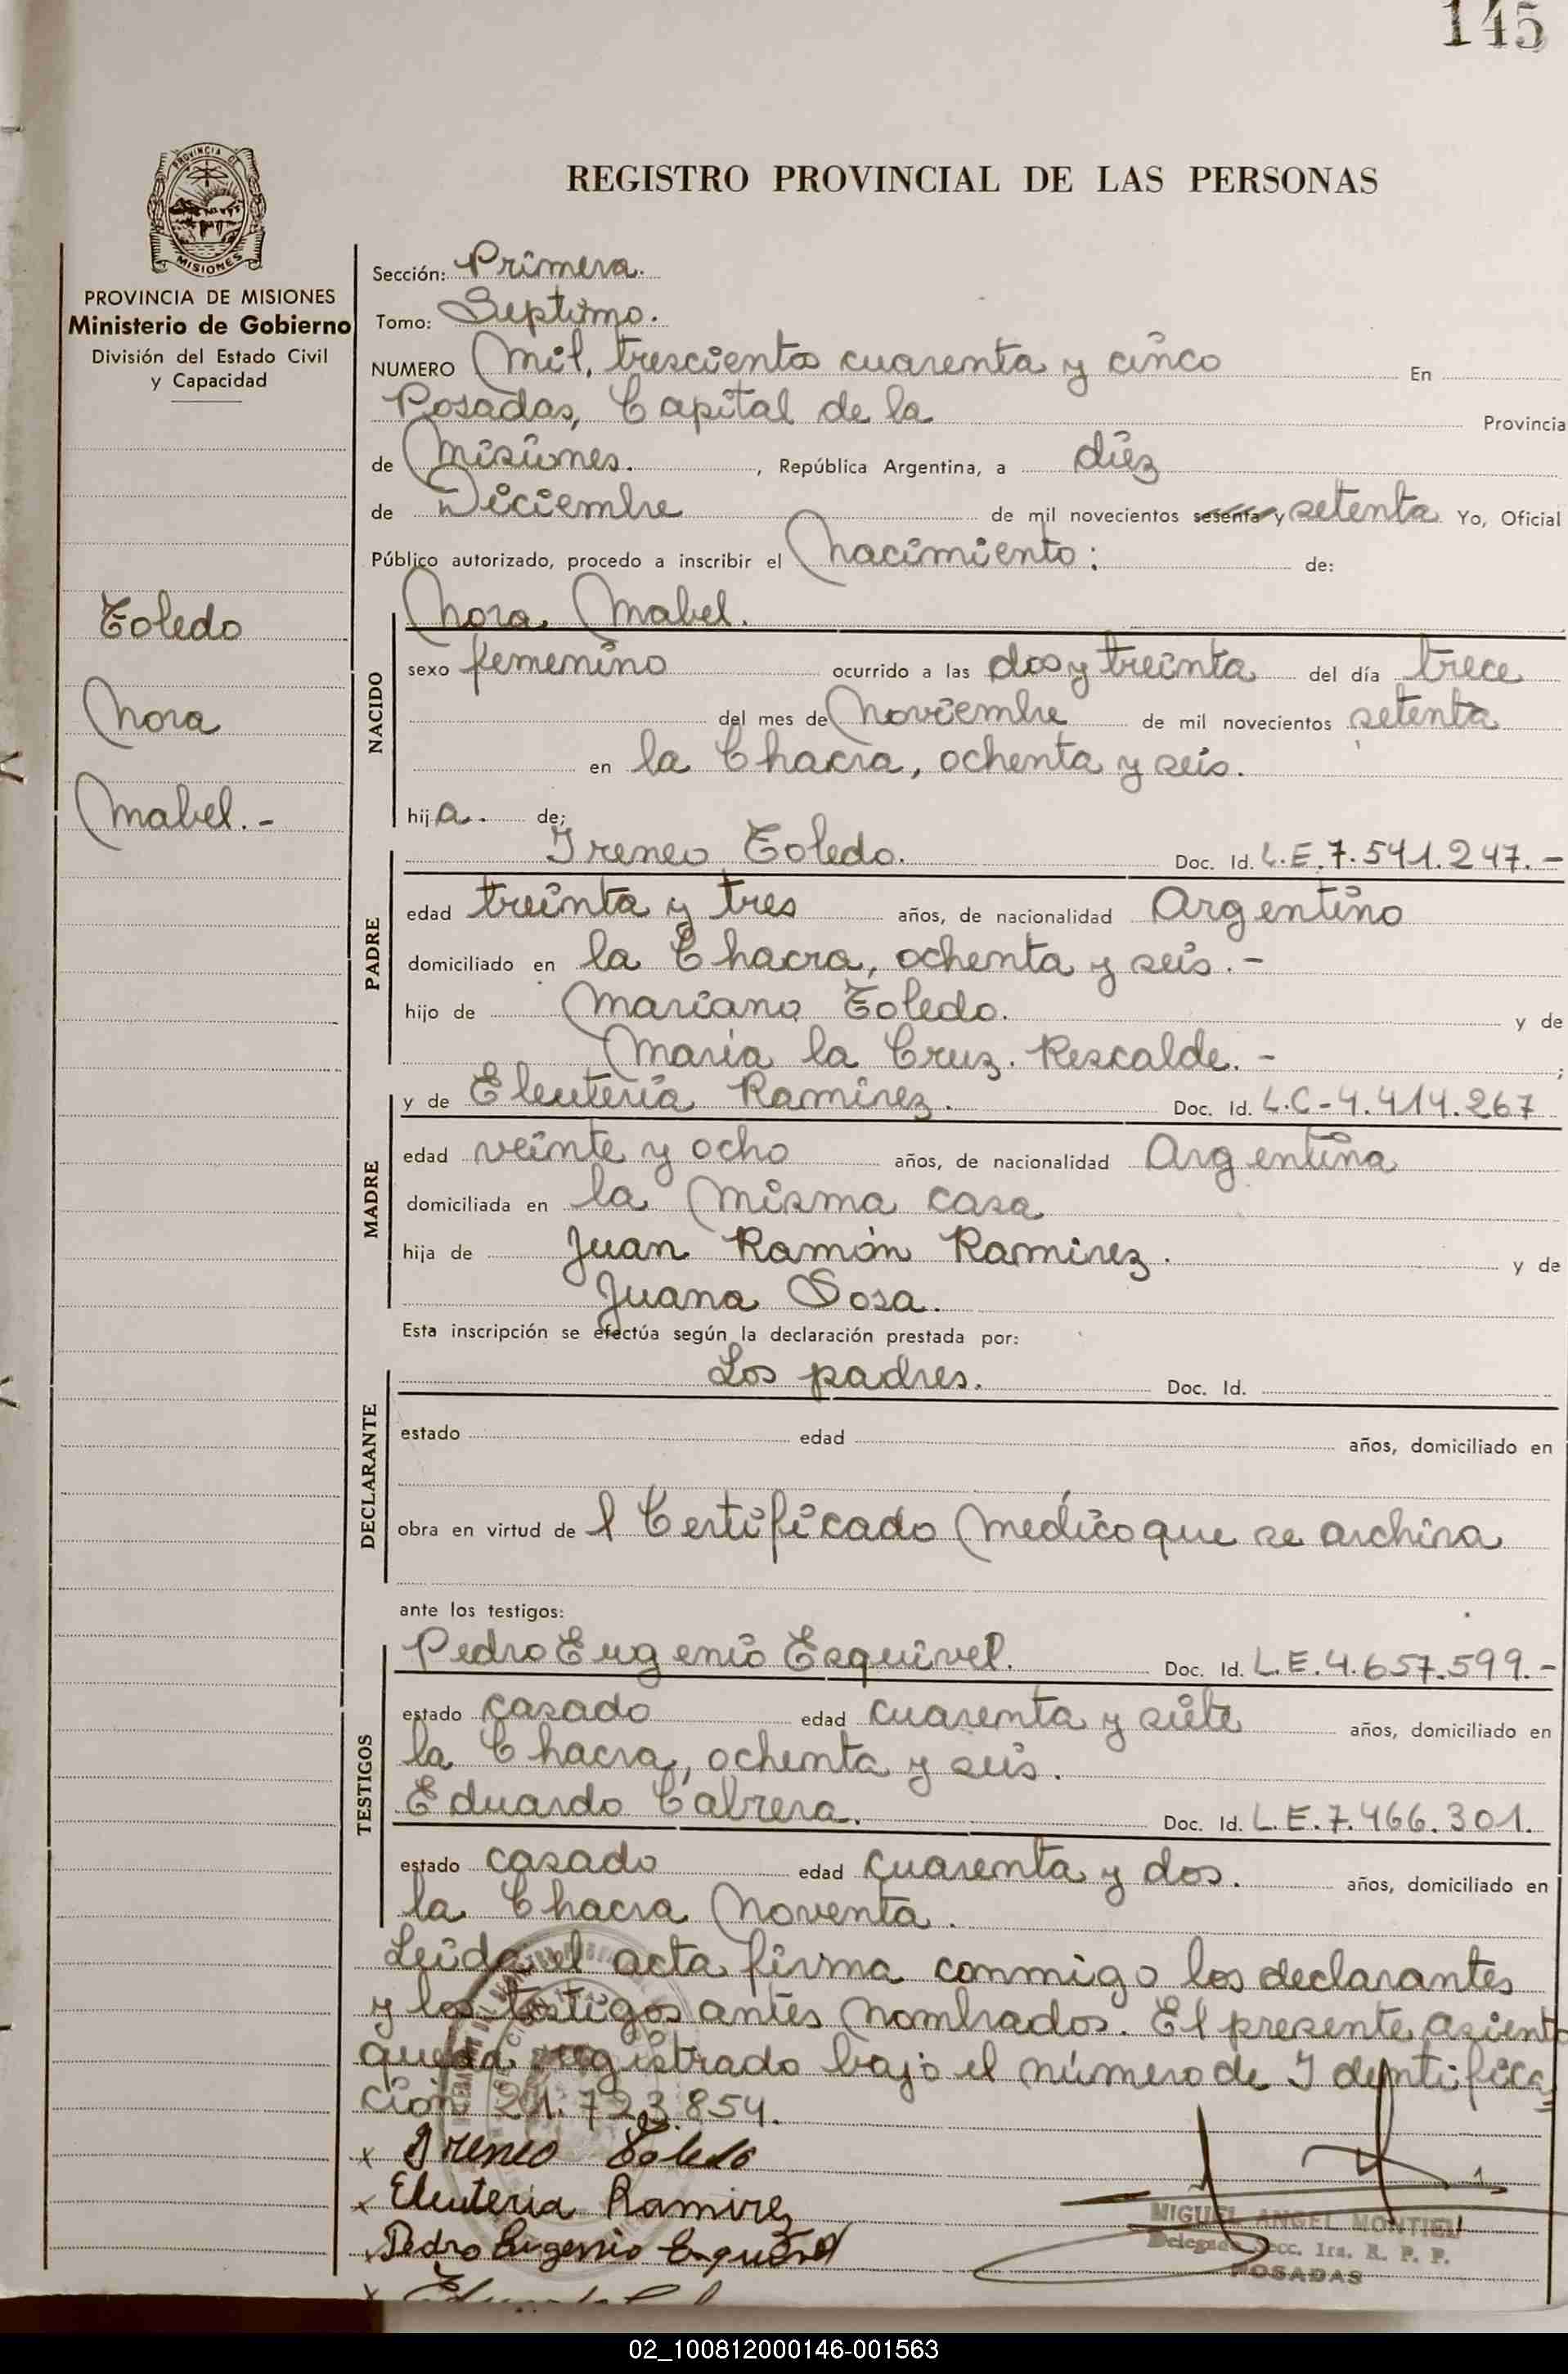 145
PROVINCIA DE
MISIONES
REGISTRO PROVINCIAL DE LAS PERSONAS
PROVINCIA DE MISIONES
Ministerio de Gobierno
División del Estado Civil
y Capacidad
Toledo
Nora
Mabel.-
Sección: Primera.
Tomo: Septimo.
NUMERO Mil, trescientos cuarenta y cinco En
Posadas, Capital de la Provincia
de Misiones. , República Argentina, a diez
de Diciembre de mil novecientos sesenta y setenta Yo, Oficial
Público autorizado, procedo a inscribir el Nacimiento: de:
Nora Mabel.
NACIDO
sexo femenino ocurrido a las dos y treinta del día trece
del mes de Noviembre de mil novecientos setenta
en la Chacra, ochenta y seis.
hija. de;
Ireneo Toledo. Doc. Id. L.E.7.541.247.-
PADRE
edad treinta y tres años, de nacionalidad Argentino
domiciliado en la Chacra, ochenta y seis.-
hijo de Mariano Toledo. y de
Maria la Cruz. Rescalde.- ;
y de Eleuteria Ramirez. Doc. Id. L.C-4.414.267
MADRE
edad veinte y ocho años, de nacionalidad Argentina
domiciliada en la Misma casa
hija de Juan Ramón Ramirez. y de
Juana Sosa.
Esta inscripción se efectúa según la declaración prestada por:
Los padres. Doc. Id.
DECLARANTE
estado edad años, domiciliado en
obra en virtud de l Certificado Médico que se archiva
ante los testigos:
Pedro Eugenio Esquivel. Doc. Id. L.E.4.657.599.-
TESTIGOS
estado casado edad cuarenta y siete años, domiciliado en
la Chacra, ochenta y seis.
Eduardo Cabrera. Doc. Id. L.E.7.466.301.
estado casado edad cuarenta y dos. años, domiciliado en
la Chacra Noventa.
Leida el acta firma conmigo los declarantes
y los testigos antes Nombrados. El presente asiento
queda registrado bajo el número de Identifica
ción 21.723.854.
x Ireneo Toledo
x Eleuteria Ramirez
x Pedro Eugenio Esquivel
MIGUEL ANGEL MONTIEL
Delegado Secc. 1ra. R. P. P.
POSADAS
02_100812000146-001563